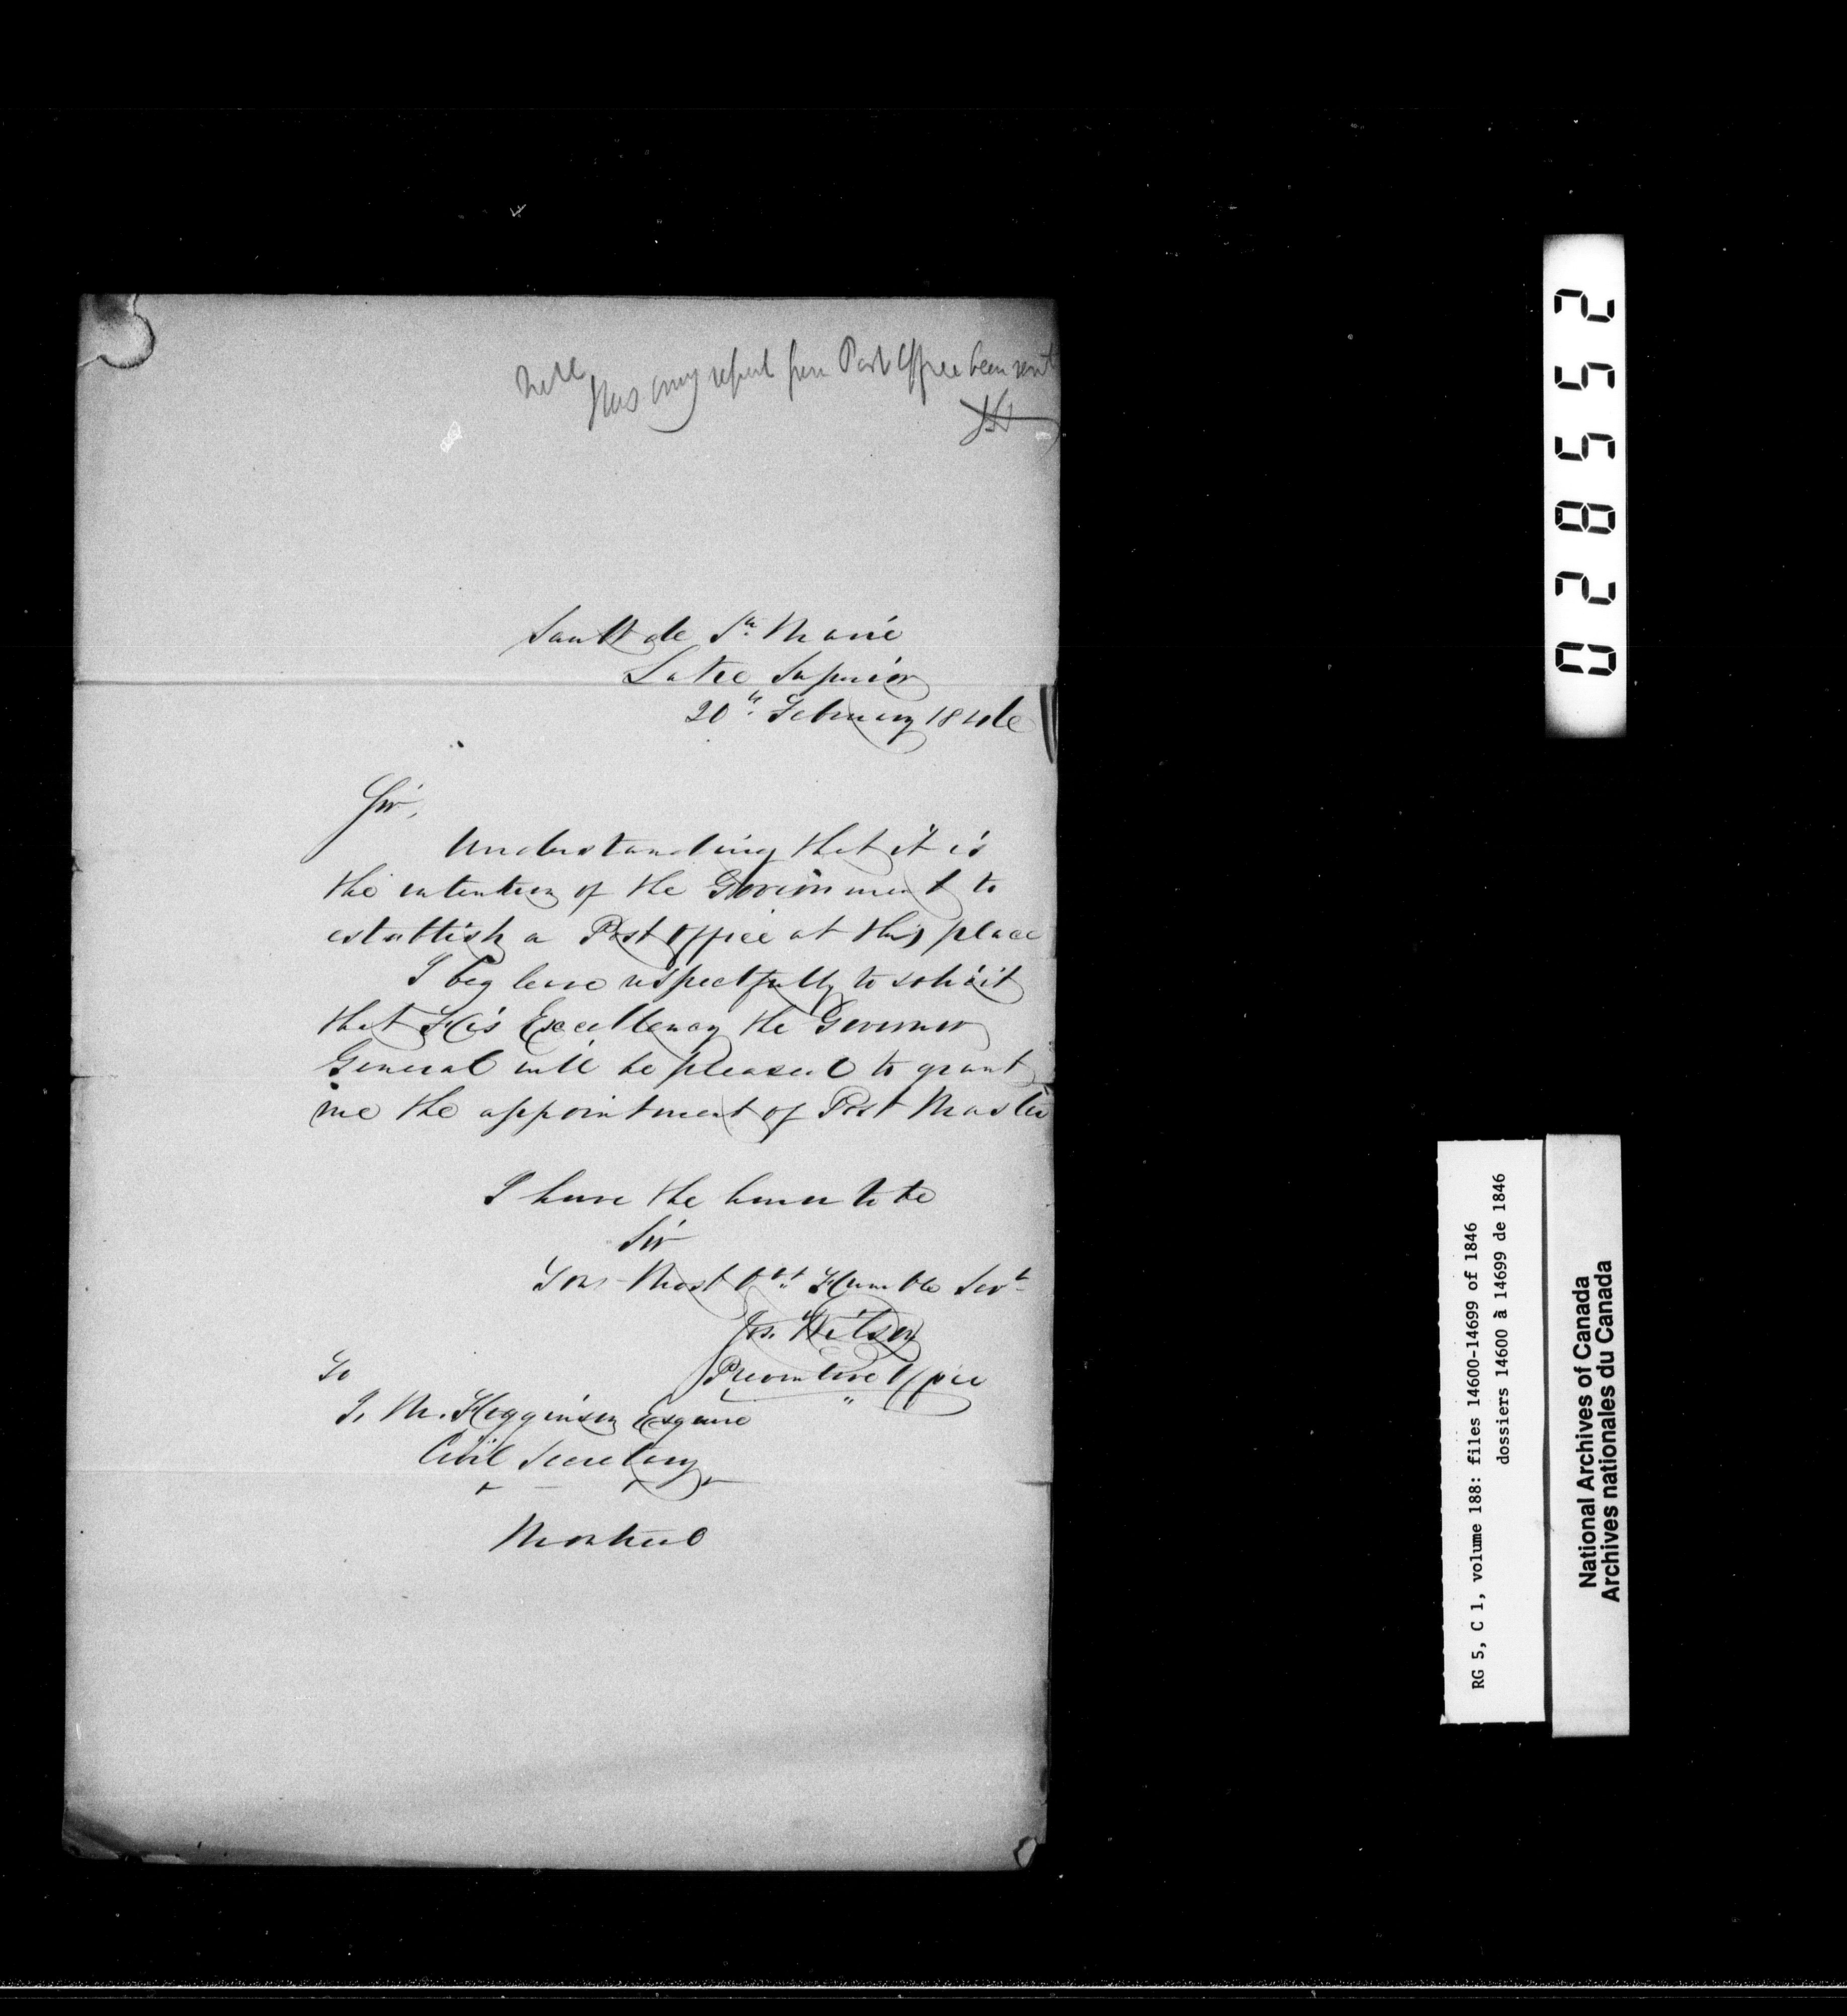 Has any report from Post Office been sent
Sault de Ste. Marie
Lake Superior
20th. February 1846
Sir,
Understanding that it is
the intention of the Government to
establish a Post Office at this place
I beg leave respectfully to solicit
that His Excellency the Governor
General will be pleased to grant
me the appointment of Post Master
I have the honor to be
Sir
Your Most Obt. Humble Servt
Jos. Wilson
Preventive Officer
To
J. M. Higginson Esquire
Civil Secretary
Montreal
028552
RG 5, C 1, volume 188: files 14600-14699 of 1846
dossiers 14600 à 14699 de 1846
National Archives of Canada
Archives nationales du Canada